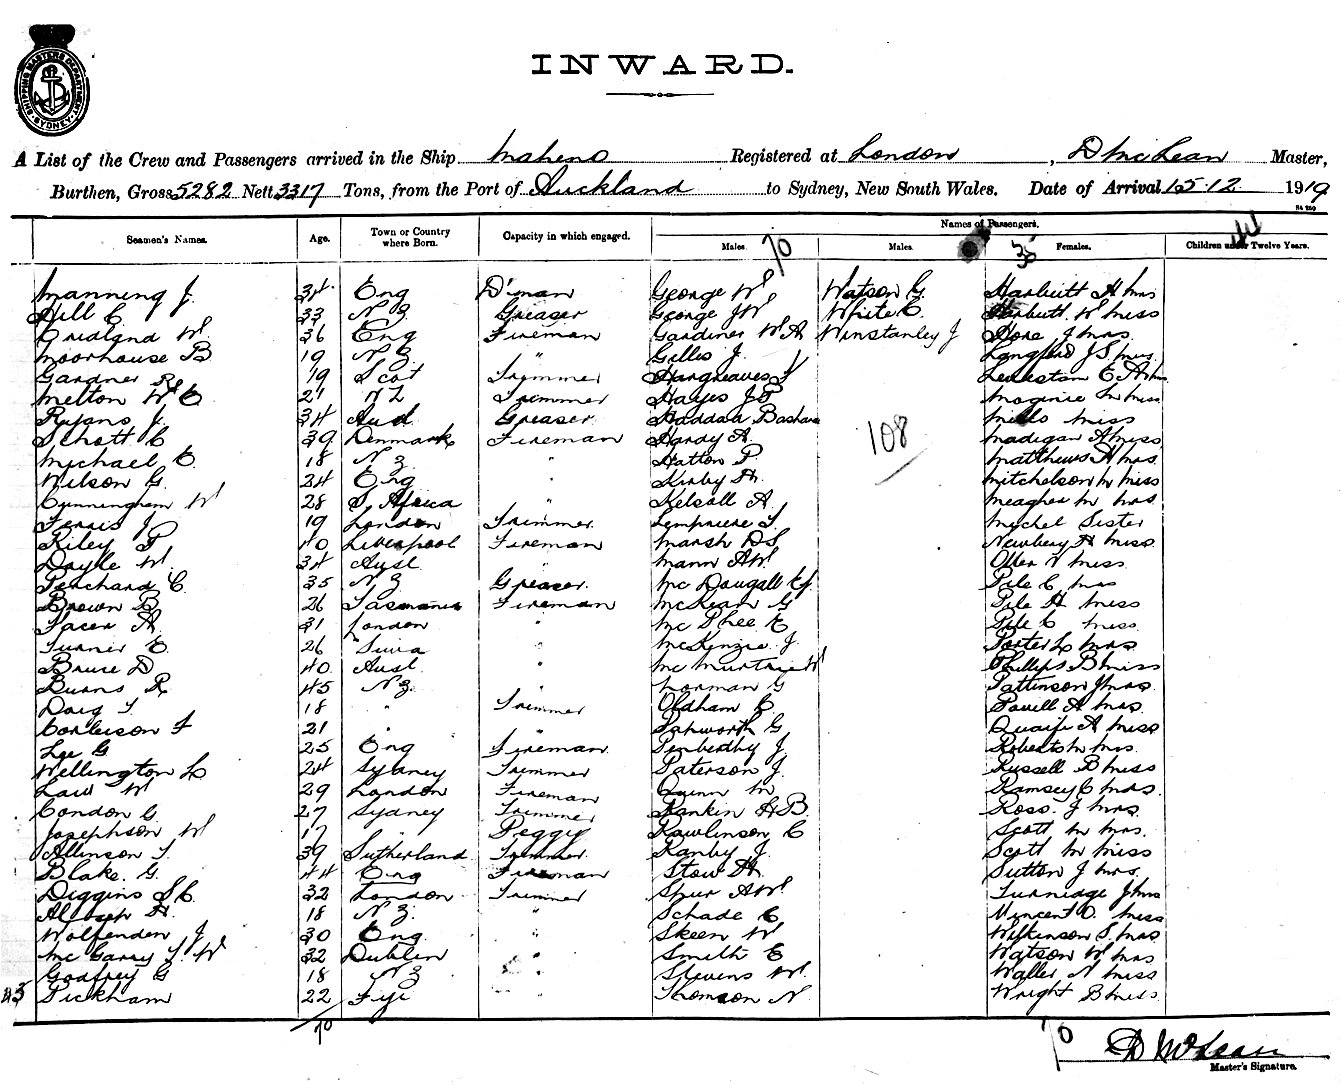 SHIPPING MASTERS DEPARTMENT SYDNEY
INWARD.
A List of the Crew and Passengers arrived in the Ship Maheno Registered at London, D McLean Master,
Burthen, Gross 5282 Nett 3317 Tons, from the Port of Auckland to Sydney, New South Wales. Date of Arrival 15.12 1919
Seamen's Names. Age. Town or Country where Born. Capacity in which engaged. Names of Passengers.
Males. 70 Males. 35 Females. Children under Twelve Years.
Manning J. 34 Eng D'man George W Watson G. Harbutt A Mrs
Hill C 33 N.Z. Greaser George JW White C. Harbutt W Miss
Gridland W. 36 Eng Fireman Gardiner W A Winstanley J Hore J Mrs
Moorhouse B 19 N.Z. " Gillis J. Langford J S Mrs
Gardner R 19 Scot Trimmer Hargreaves Lenkston E A
Melton W E 21 N Z Trimmer Hayes J P Maginie M Miss
Ryans J. 34 Aus Greaser Haddad Bashara Mills Miss
Schott C 39 Denmark Fireman Hardy A. Madigan A Miss
108
Michael E. 18 N.Z. " Hatton P. Matthews A Mrs
Wilson G. 24 Eng " Kirby A. Mitchelson M Miss
Cunningham W 28 S. Africa " Kelsall A Meagher M Mrs
Ferris J 19 London Trimmer Lempriere T. Michel Sister
Riley P 40 Liverpool Fireman Marsh D S Newbery A Miss
Doyle W. 34 Aust. " Mann A W Miss
Penchard C. 35 N.Z Greaser McDougall Pile C Mrs
Brown B 26 Tasmania Fireman McKean G Pile A Miss
Facer A. 31 London " McPhee E Pile C Miss
Turner E. 26 Suva " McKenzie J Porter L Mrs
Bruce D 40 Aust " McMurtrie W Phillips B Miss
Burns R 45 N.Z. " Norman G Pattinson J Mrs
Doig T. 18 " Trimmer Oldham C Powell A Mrs
F 21 " " Papworth G Quaife A Miss
Lee G 25 Eng Fireman Penberthy J Roberts M Mrs
Wellington L 24 Sydney Trimmer Paterson J. Russell B Miss
Law W 29 London Fireman Quinn M Ramsey C Mrs
Condon G. 27 Sydney Trimmer Rankin A B. Ross J Mrs
Josephson W 17 Peggy Rawlinson C Scott M Mrs.
Allinson T. 39 Sutherland Trimmer Ranby J. Scott M Miss
Blake G. 44 Eng Fireman Stow A. Sutton J Mrs
Diggins S C. 32 London Trimmer Spur A W Turnidge J Mrs
A. 18 N.Z. " Schade C Vincent O. Miss
Wolfenden J 30 Eng " Skeen W Wilkinson S Mrs
McGarry T. W 32 Dublin " Smith E Watson W Mrs
Godfrey G 18 N Z " Stevens W. Waller N Miss
43 Pickham 22 Fiji " Thomson N. Wright B Miss
70 70
D McLean
Master's Signature.